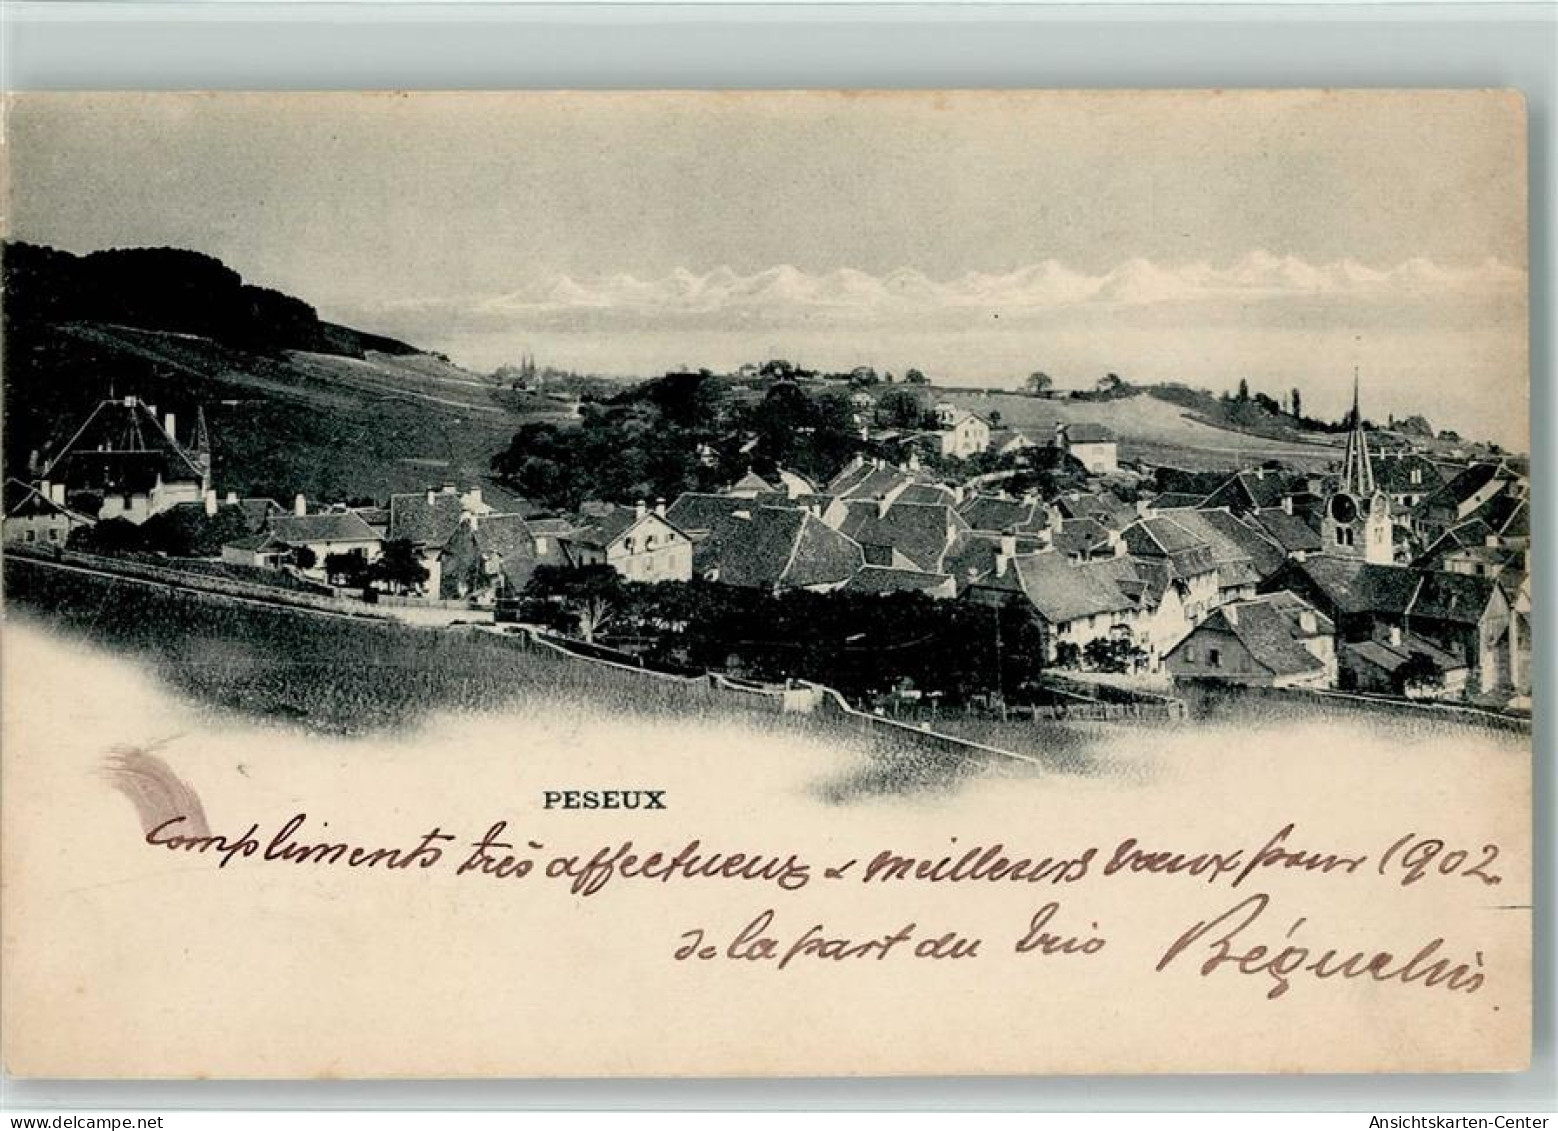 PESEUX
Compliments très affectueux & meilleurs vœux pour 1902.
de la part du trio Béguelin
delcampe.net
Ansichtskarten-Center